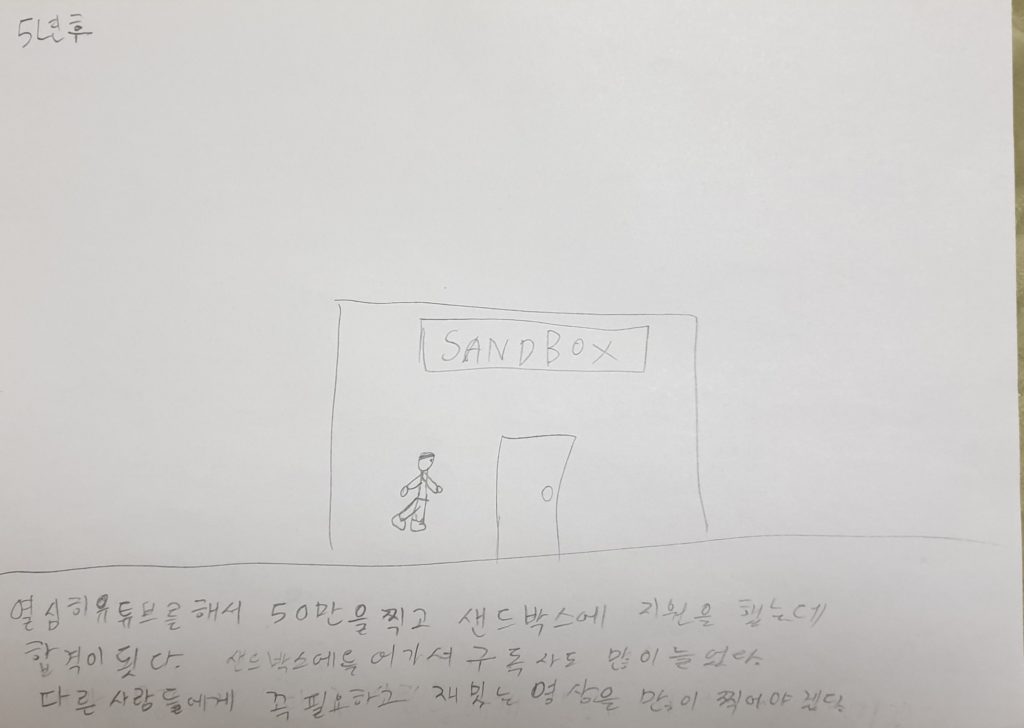 5년후
SANDBOX
열심히유튜브를 해서 50만을 찍고 샌드박스에 지원을 했는데
합격이 됫다. 샌드박스에들어가셔 구독사도 많이 늘었다.
다른 사람들에게 꼭 필요하고 재밌는 영상을 많이 찍어야 겠다.